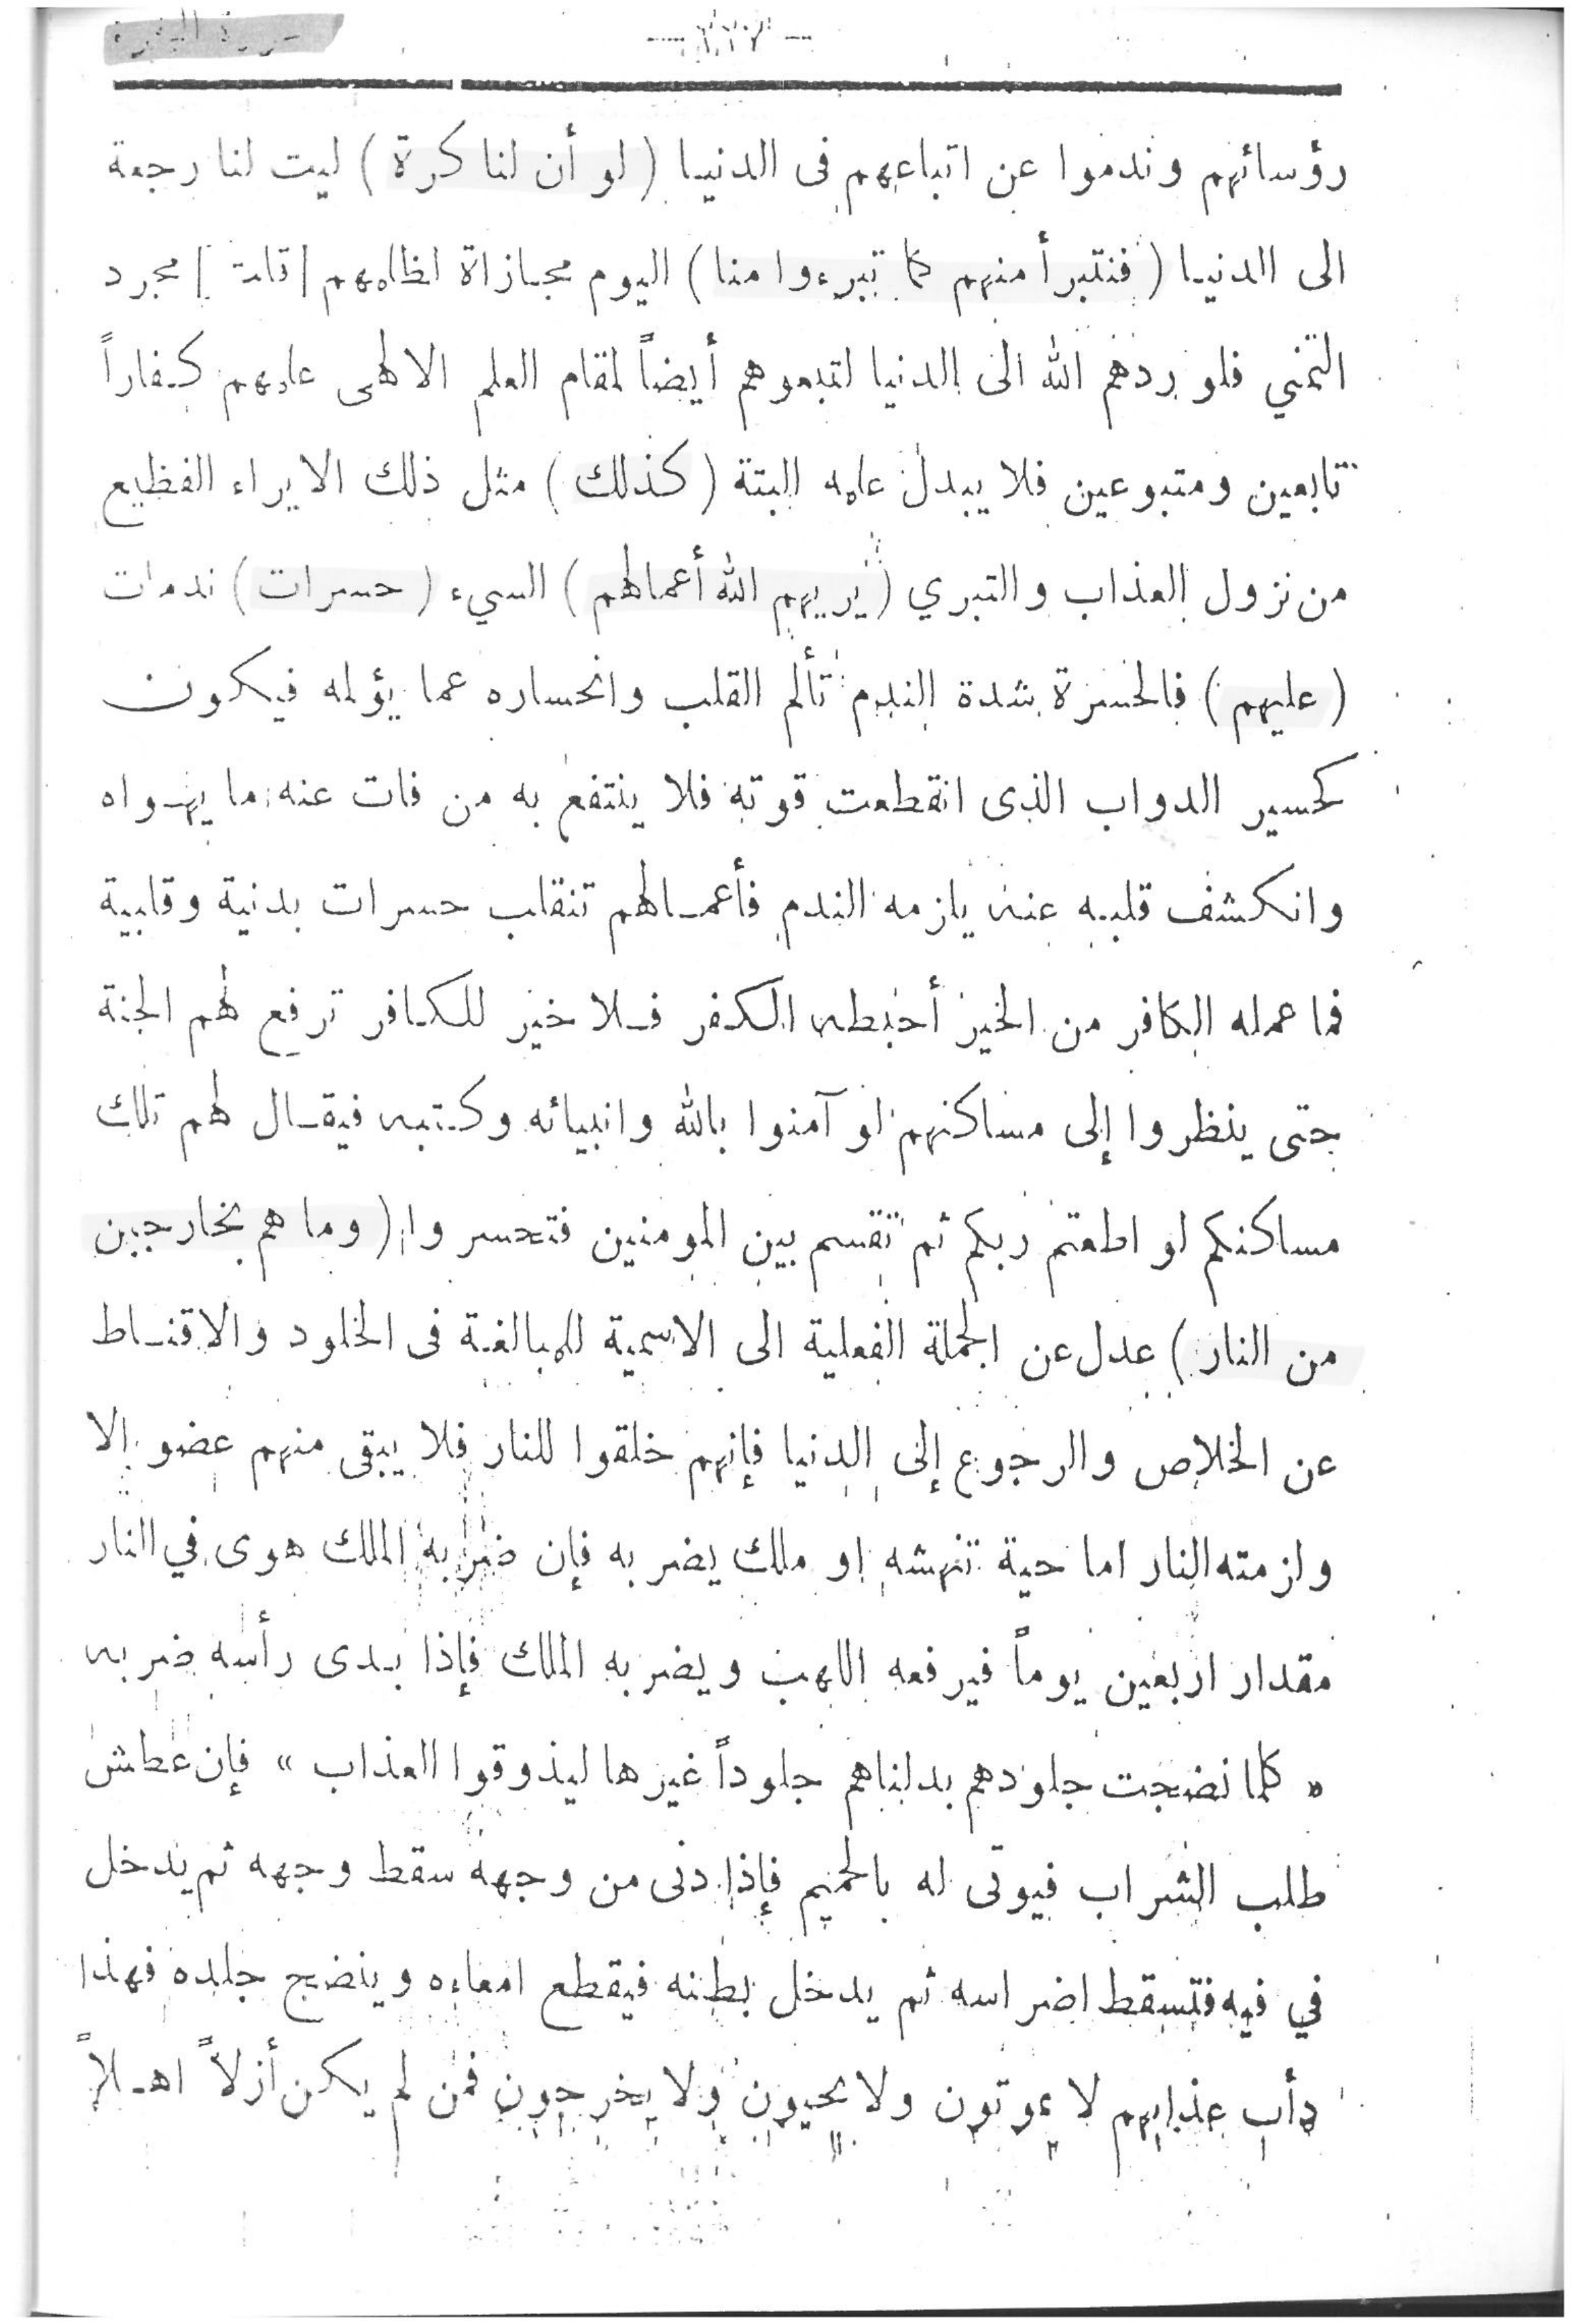 سورة البقرة
رؤسائهم وندموا عن اتباعهم فى الدنيا (لو أن لنا كرة) ليت لنا رجعة
الى الدنيا (فنتبرأ منهم كما تبرءوا منا) اليوم مجازاة لظلمهم قلت مجرد
التمني فلو ردهم الله الى الدنيا لتبعوهم أيضاً لمقام العلم الالهى علمهم كفاراً
تابعين ومتبوعين فلا يبدل علمه البتة (كذلك) مثل ذلك الايراء الفظيع
من نزول العذاب والتبري (يريهم الله أعمالهم) السيء (حسرات) ندمات
(عليهم) فالحسرة شدة الندم تألم القلب وانحساره عما يؤلمه فيكون
كحسير الدواب الذى انقطعت قوته فلا ينتفع به من فات عنه ما يهواه
وانكشف قلبه عنه يلزمه الندم فأعمالهم تنقلب حسرات بدنية وقلبية
فما عمله الكافر من الخير أحبطه الكفر فلا خير للكافر ترفع لهم الجنة
حتى ينظروا إلى مساكنهم لو آمنوا بالله وانبيائه وكتبه فيقال لهم تلك
مساكنكم لو اطعتم ربكم ثم تقسم بين المومنين فتحسروا (وما هم بخارجين
من النار) عدل عن الجملة الفعلية الى الاسمية للمبالغة فى الخلود والاقناط
عن الخلاص والرجوع إلى الدنيا فإنهم خلقوا للنار فلا يبقى منهم عضو الا
ولزمته النار اما حية تنهشه او ملك يضربه فإن ضربه الملك هوى في النار
مقدار اربعين يوماً فيرفعه اللهب ويضربه الملك فإذا بدى رأسه ضربه
« كلما نضجت جلودهم بدلناهم جلوداً غيرها ليذوقوا العذاب » فإن عطش
طلب الشراب فيوتى له بالحميم فإذا دنى من وجهه سقط وجهه ثم يدخل
في فيه فتسقط اضراسه ثم يدخل بطنه فيقطع امعاءه وينضج جلده فهذا
دأب عذابهم لا يموتون ولا يحيون ولا يخرجون فمن لم يكن أزلاً اهلاً